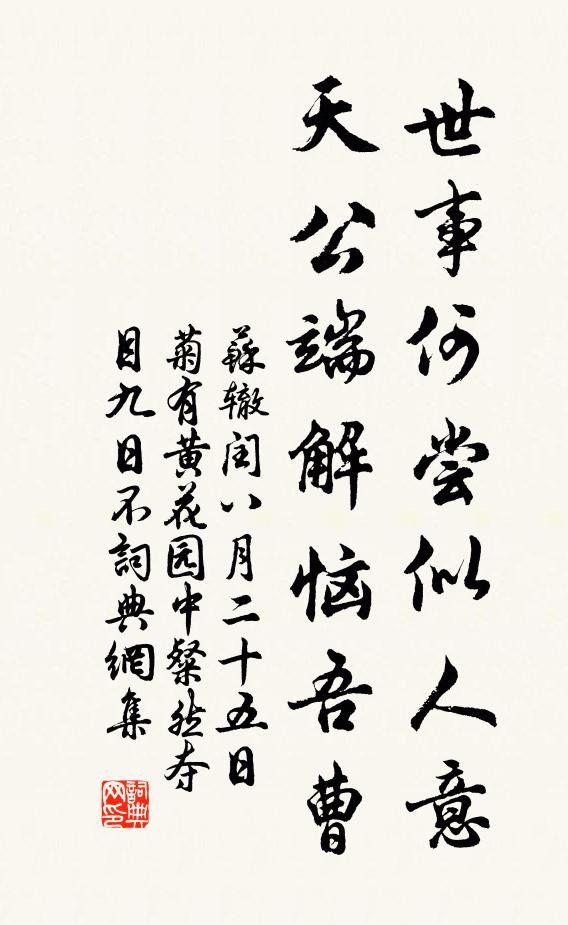 世事何尝似人意
天公端解恼吾曹
蘇辙闰八月二十五日
菊有黄花园中粲然夺
目九日不詞典網集
詞典网印